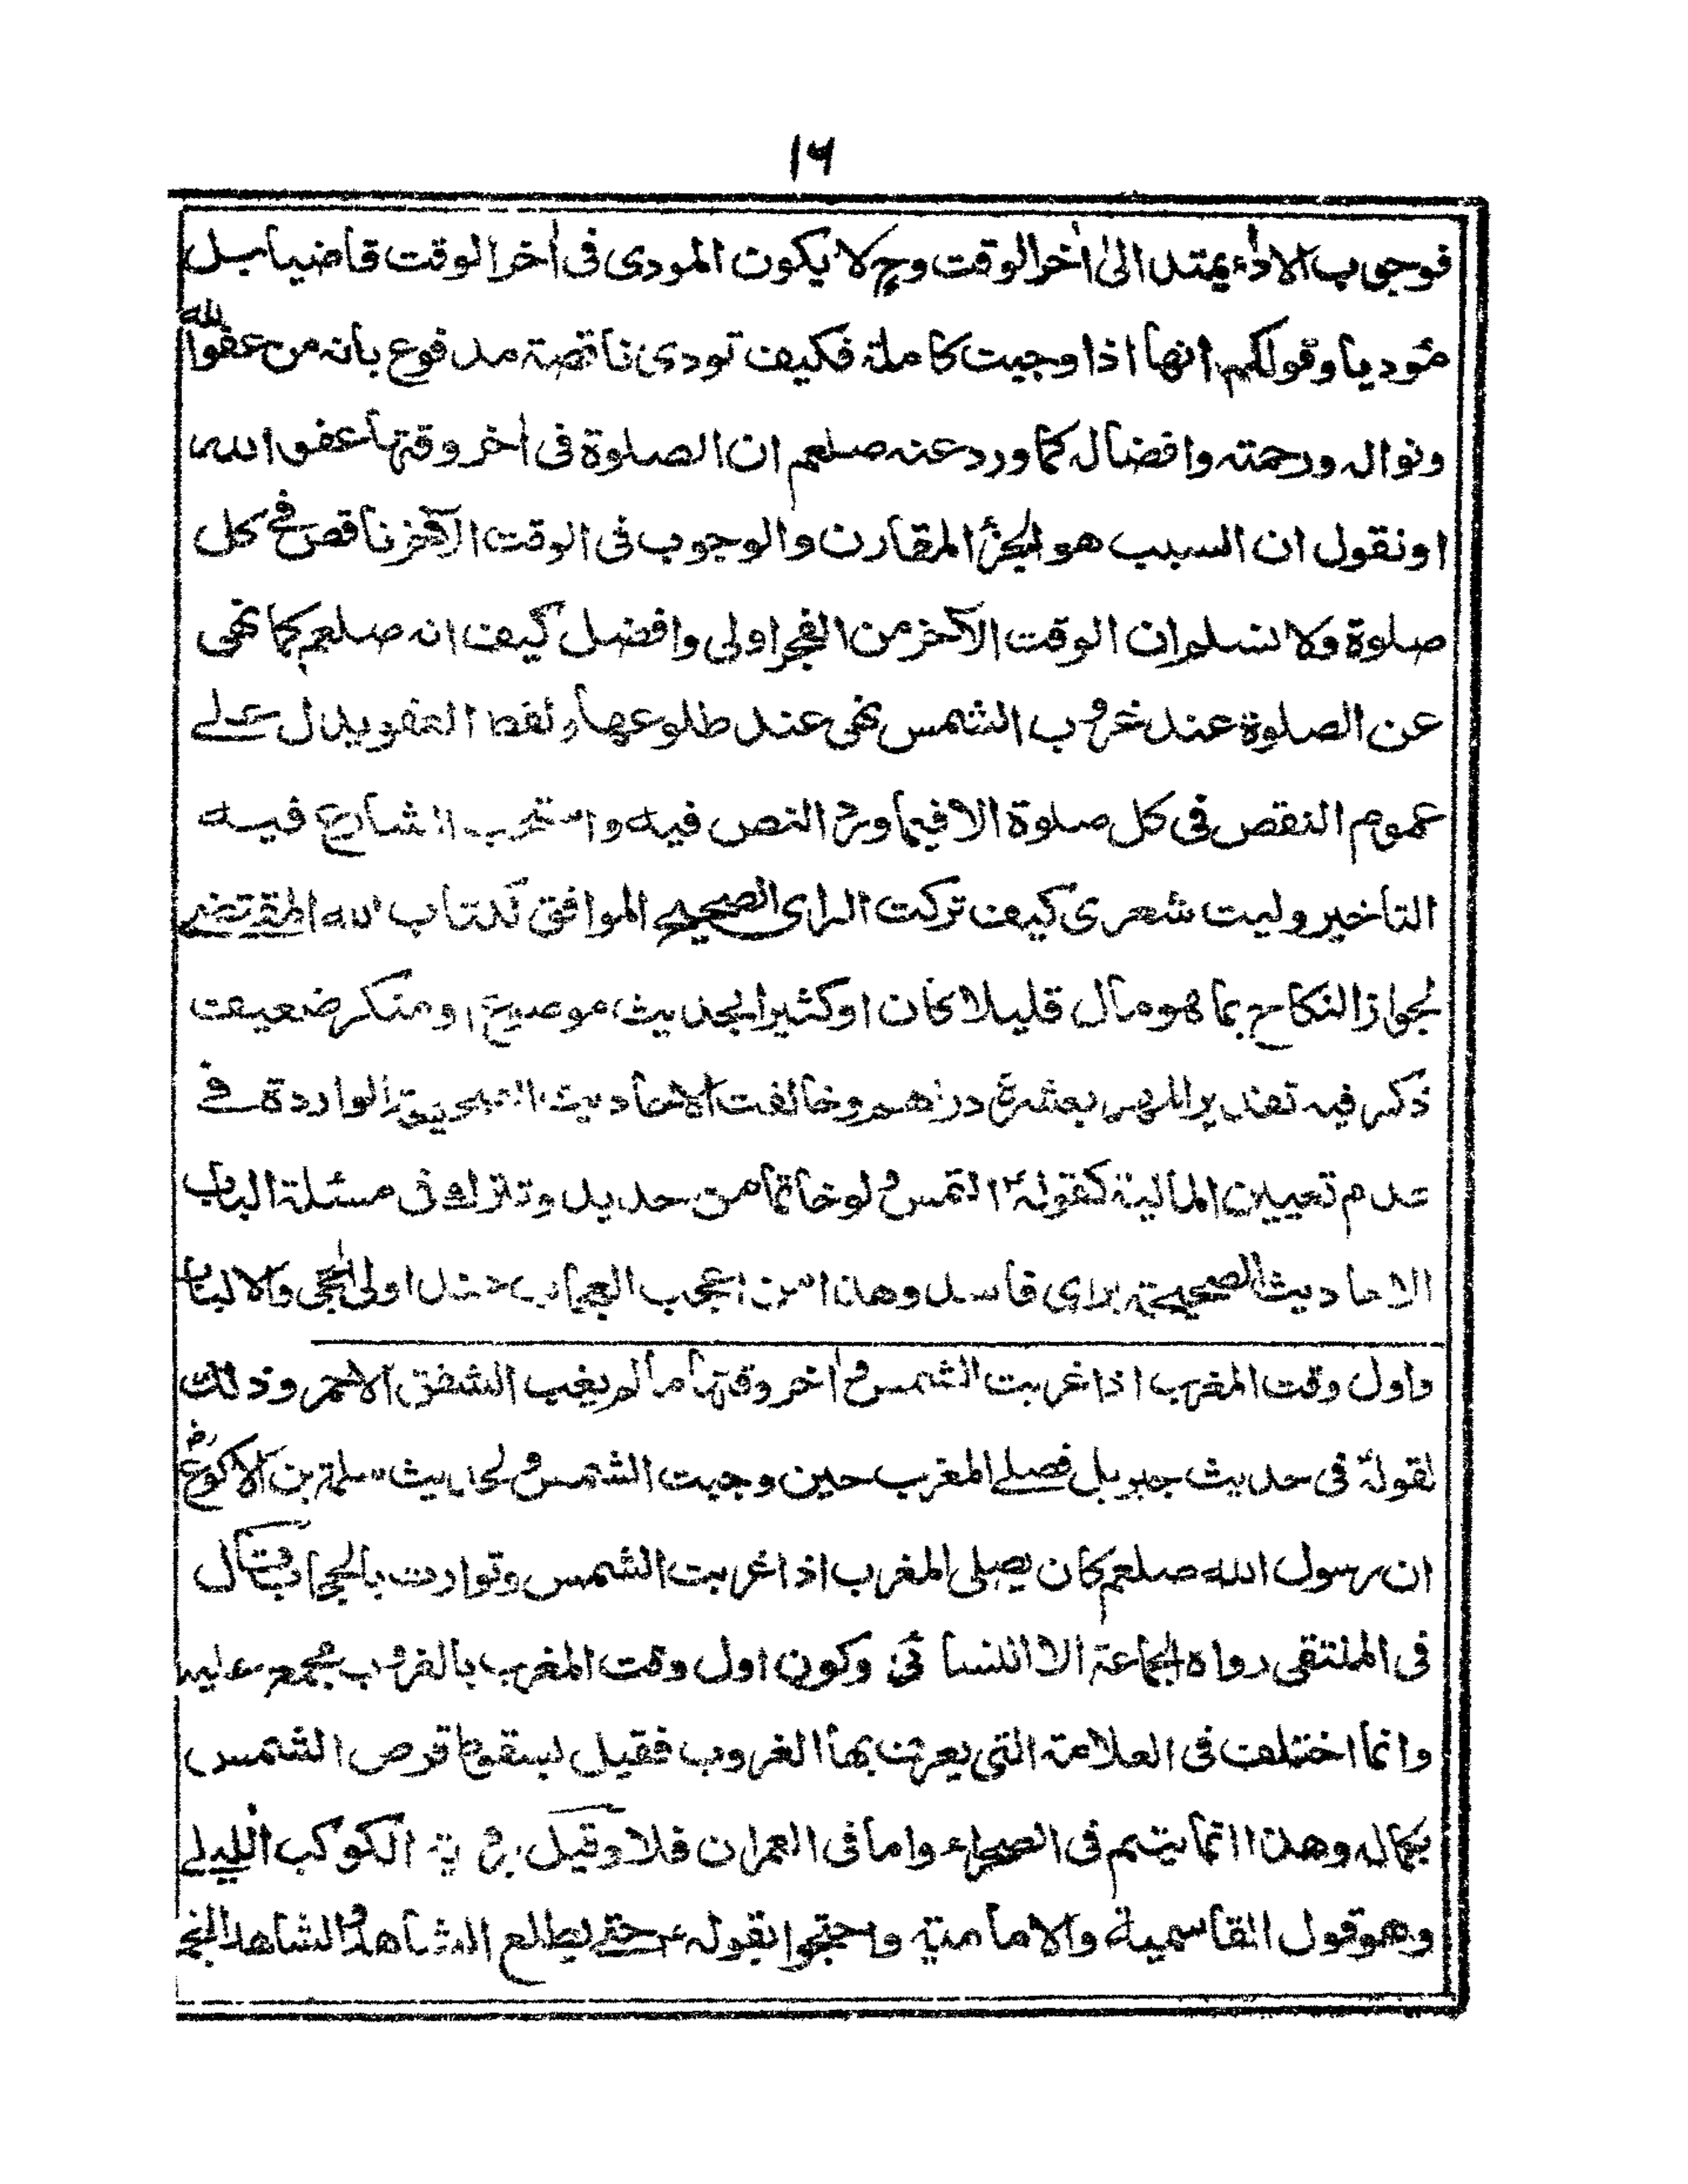 ١٦
فوجوب الاداء يمتد الى اٰخر الوقت وح لا يكون المودى فى اٰخر الوقت قاضيا بل
موديا وقولكم انها اذا وجبت كاملة فكيف تودى ناقصة مدفوع بانه من عفو الله
ونواله ورحمته وافضاله كما ورد عنه صلعم ان الصلوة فى اخر وقتها عفو الله
او نقول ان السبب هو الجزأ المقارن والوجوب فى الوقت الآخر ناقص فى كل
صلوة ولا نسلم ان الوقت الآخر من الفجر اولى وافضل كيف انه صلعم كما نهى
عن الصلوة عند غروب الشمس نهى عند طلوعها ولفظ العفو يدل على
عموم النقص فى كل صلوة الا فيما ورد النص فيه واستحب الشارع فيه
التاخير وليت شعرى كيف تركت الراى الصحيح الموافق لكتاب الله المقتضى
لجواز النكاح بما هو مال قليلا كان او كثيرا بحديث موضوع او منكر ضعيف
ذكر فيه تقدير المهر بعشرة دراهم وخالفت الاحاديث الصحيحة الواردة فى
عدم تعيين المالية كقوله ع التمس ولو خاتما من حديد وتترك فى مسئلة الباب
الاحاديث الصحيحة براى فاسد وهذا من اعجب العجاب عند اولى الحجى والالباب
واول وقت المغرب اذا غربت الشمس واٰخر وقتها ما لم يغب الشفق الاحمر وذلك
لقوله فى حديث جبريل فصلى المغرب حين وجبت الشمس ولحديث سلمة بن الاكوع رض
ان رسول الله صلعم كان يصلى المغرب اذا غربت الشمس وتوارت بالحجاب قال
فى المنتقى رواه الجماعة الا النسائى وكون اول وقت المغرب بالغروب مجمع عليه
وانما اختلف فى العلامة التى يعرف بها الغروب فقيل بسقوط قرص الشمس
بكماله وهذا انما يتم فى الصحراء واما فى العمران فلا وقيل برؤية الكوكب الليلى
وهو قول القاسمية والامامية واحتجوا بقوله ع حتى يطلع الشاهد والشاهد النجم